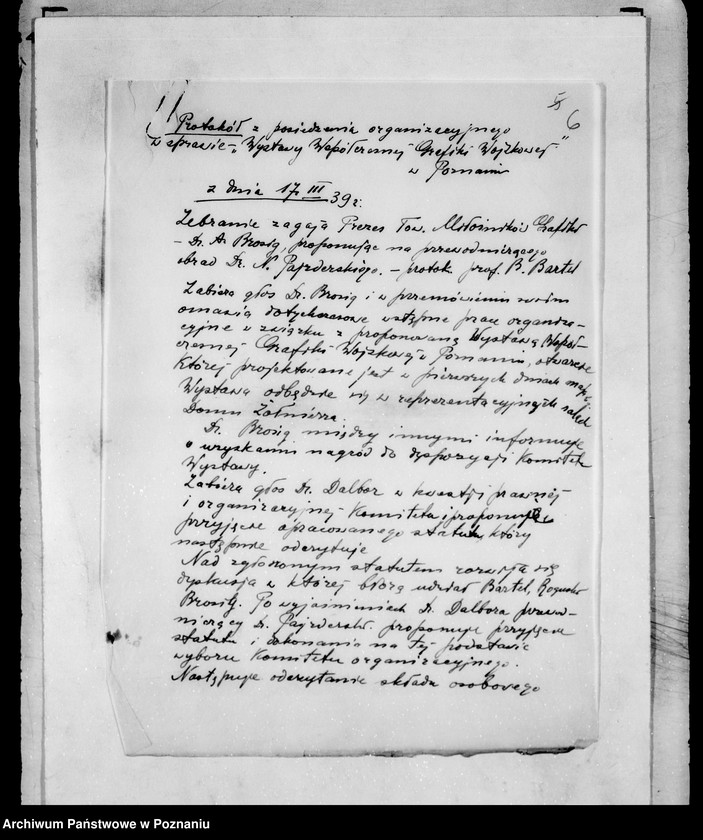 6
Protokół z posiedzenia organizacyjnego
w sprawie „Wystawy Współczesnej Grafiki Wojskowej"
w Poznaniu
z dnia 17 III 39 r.
Zebranie zagaja Prezes Tow. Miłośników Grafiki
- Dr. A. Brosig, proponując na przewodniczącego
obrad Dr. N. Pajzderskiego. - protok. prof. B. Bartel
Zabiera głos Dr. Brosig i w przemówieniu swoim
omawia dotychczasowe wstępne prace organiza-
cyjne w związku z proponowaną Wystawą Współ-
czesnej Grafiki Wojskowej w Poznaniu, otwarcie
której projektowane jest w pierwszych dniach maja
Wystawa odbędzie się w reprezentacyjnych salach
Domu Żołnierza.
Dr. Brosig między innymi informuje
o uzyskaniu nagród do dyspozycji Komitetu
Wystawy.
Zabiera głos Dr. Dalbor w kwestji prawnej
i organizacyjnej Komitetu i proponuje
przyjęcie opracowanego statutu, który
następnie odczytuje
Nad zgłoszonym statutem rozwija się
dyskusja w której biorą udział Bartel,
Brosig. Po wyjaśnieniach Dr. Dalbora przewo-
dniczący Dr. Pajzderski proponuje przyjęcie
statutu i dokonania na tej podstawie
wyboru Komitetu organizacyjnego.
Następuje odczytanie składu osobowego
Archiwum Państwowe w Poznaniu